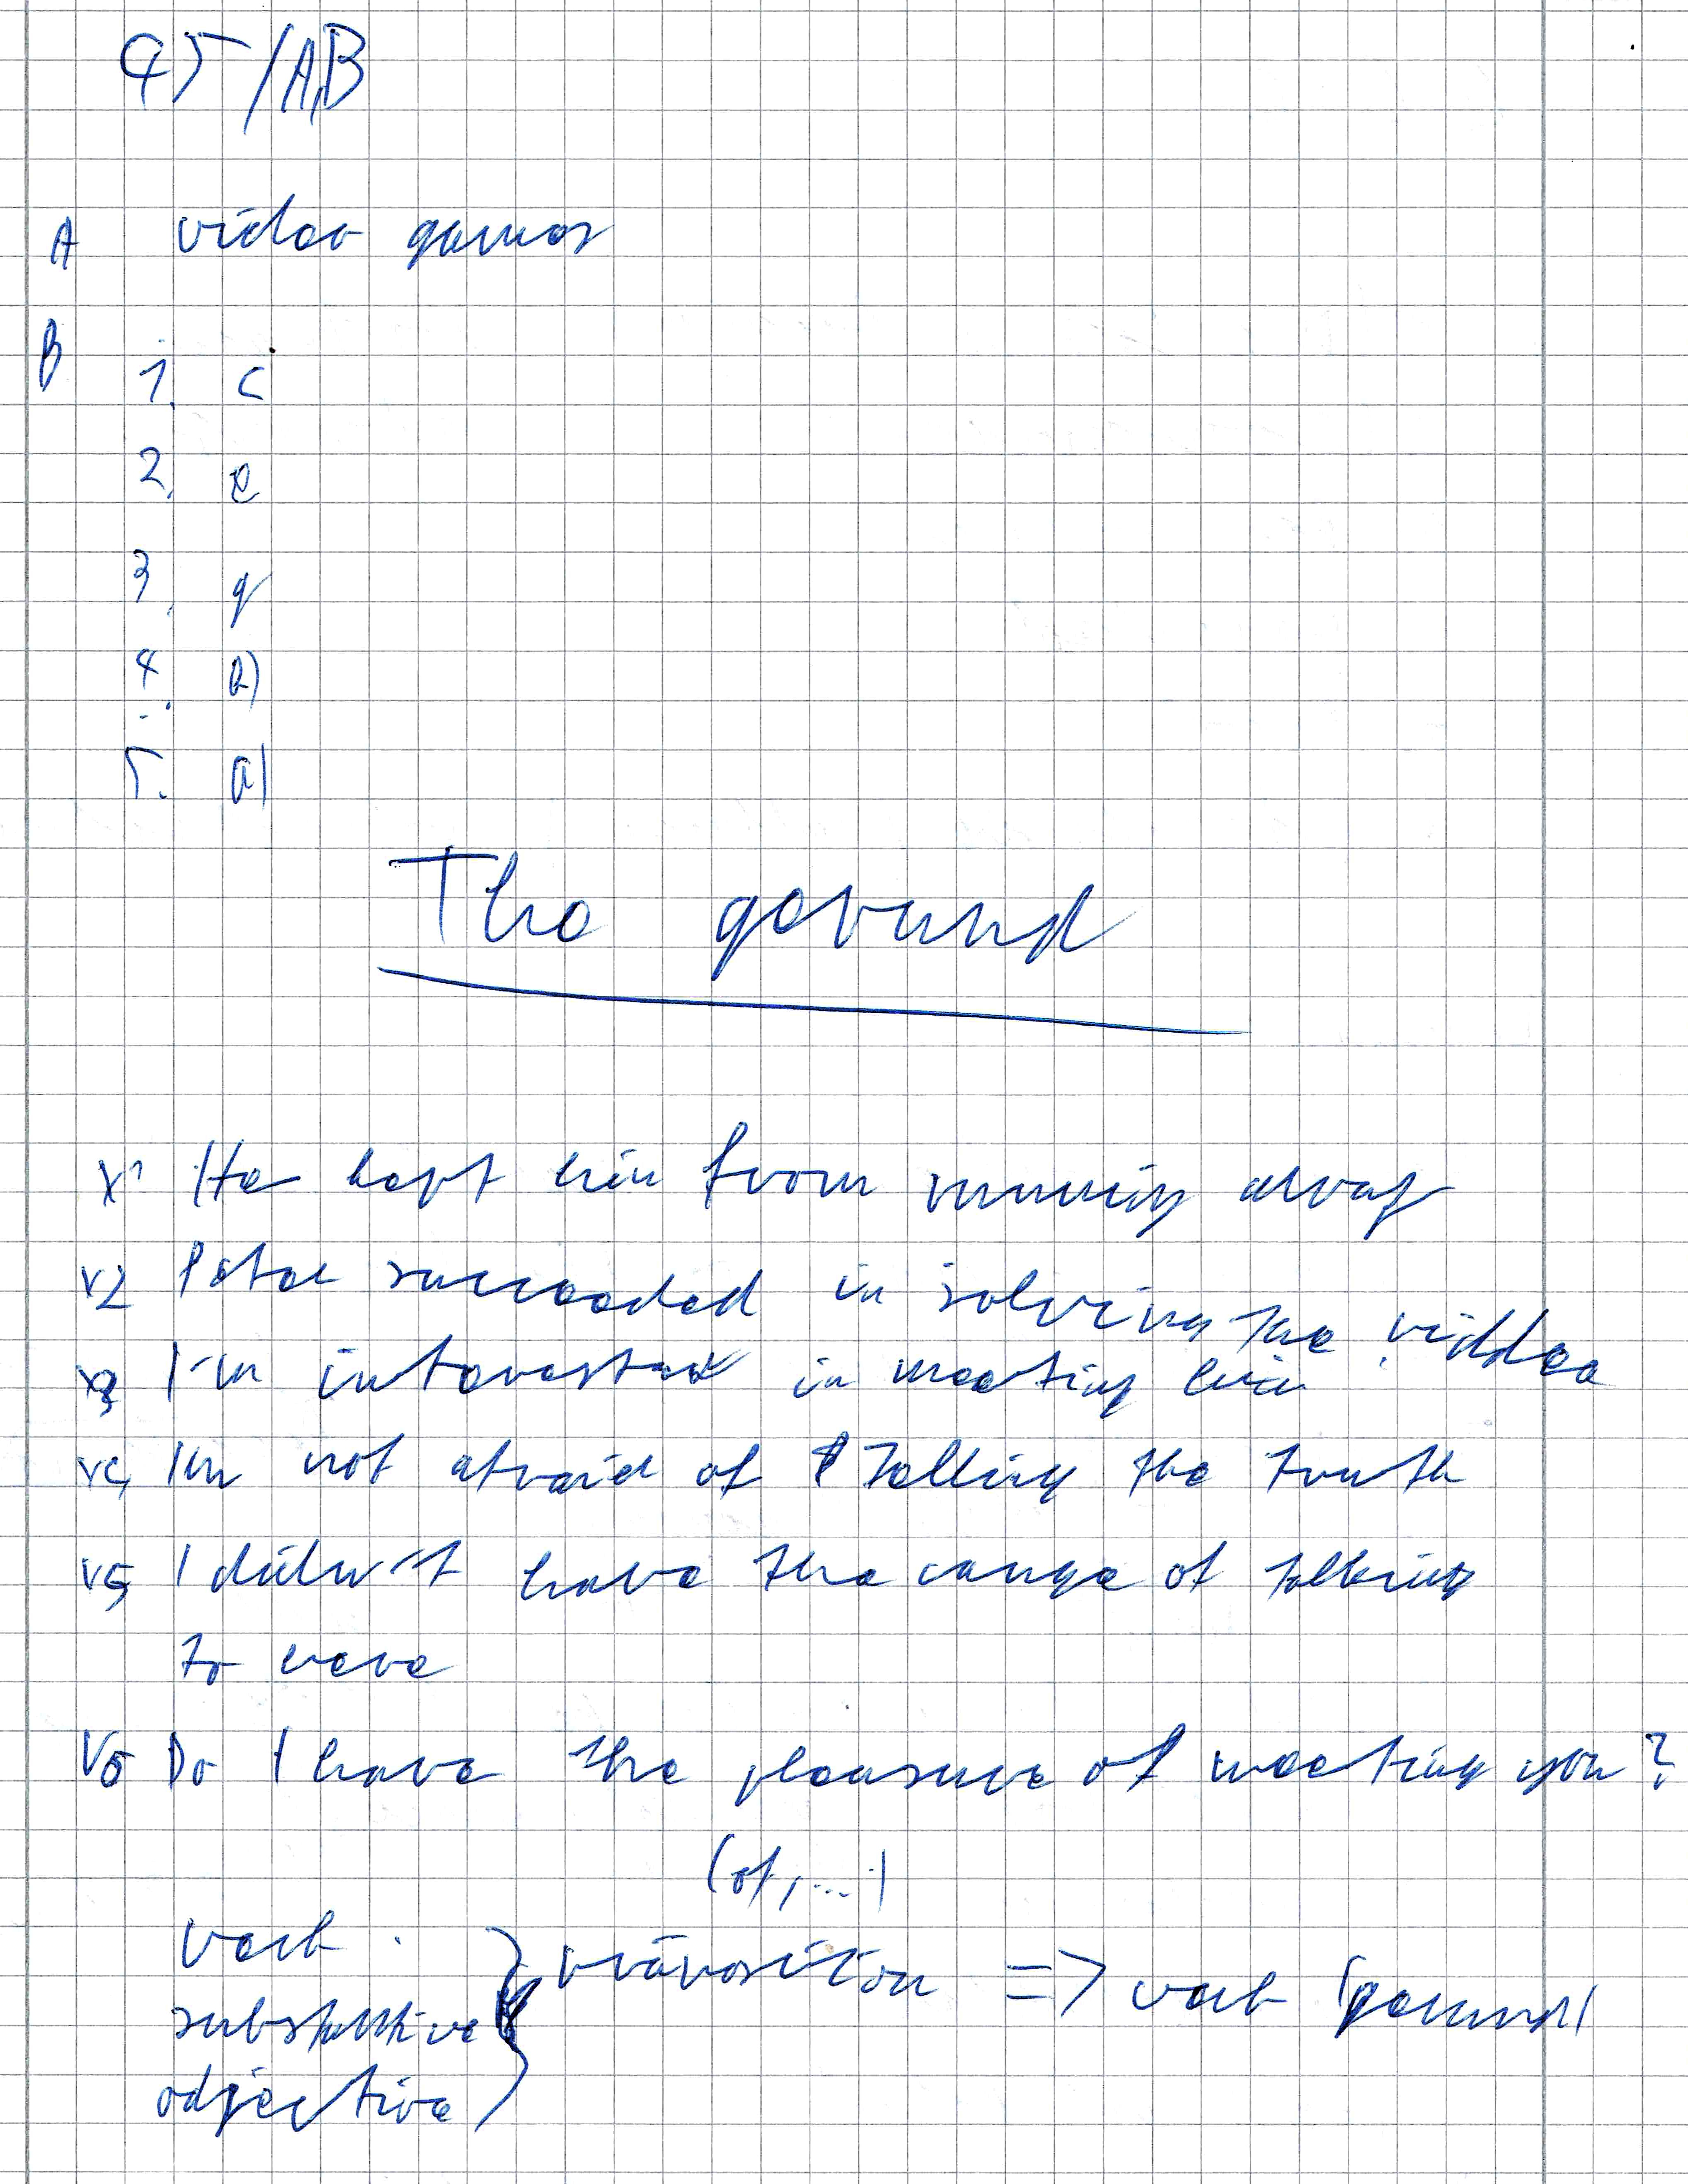 45/A,B
A video games
B
1. c
2. e
3. g
4.
5. a)
The gerund
x1 He kept him from running away
v2 Peter succeeded in solving the riddee
x3 I'm interested in meeting him
v4 Im not afraid of telling the truth
v5 I didn't have the cange of talking
to
V6 Do I have the pleasure of meeting you?
(of, ...)
verb
substantive präposition => verb (gerund)
adjective